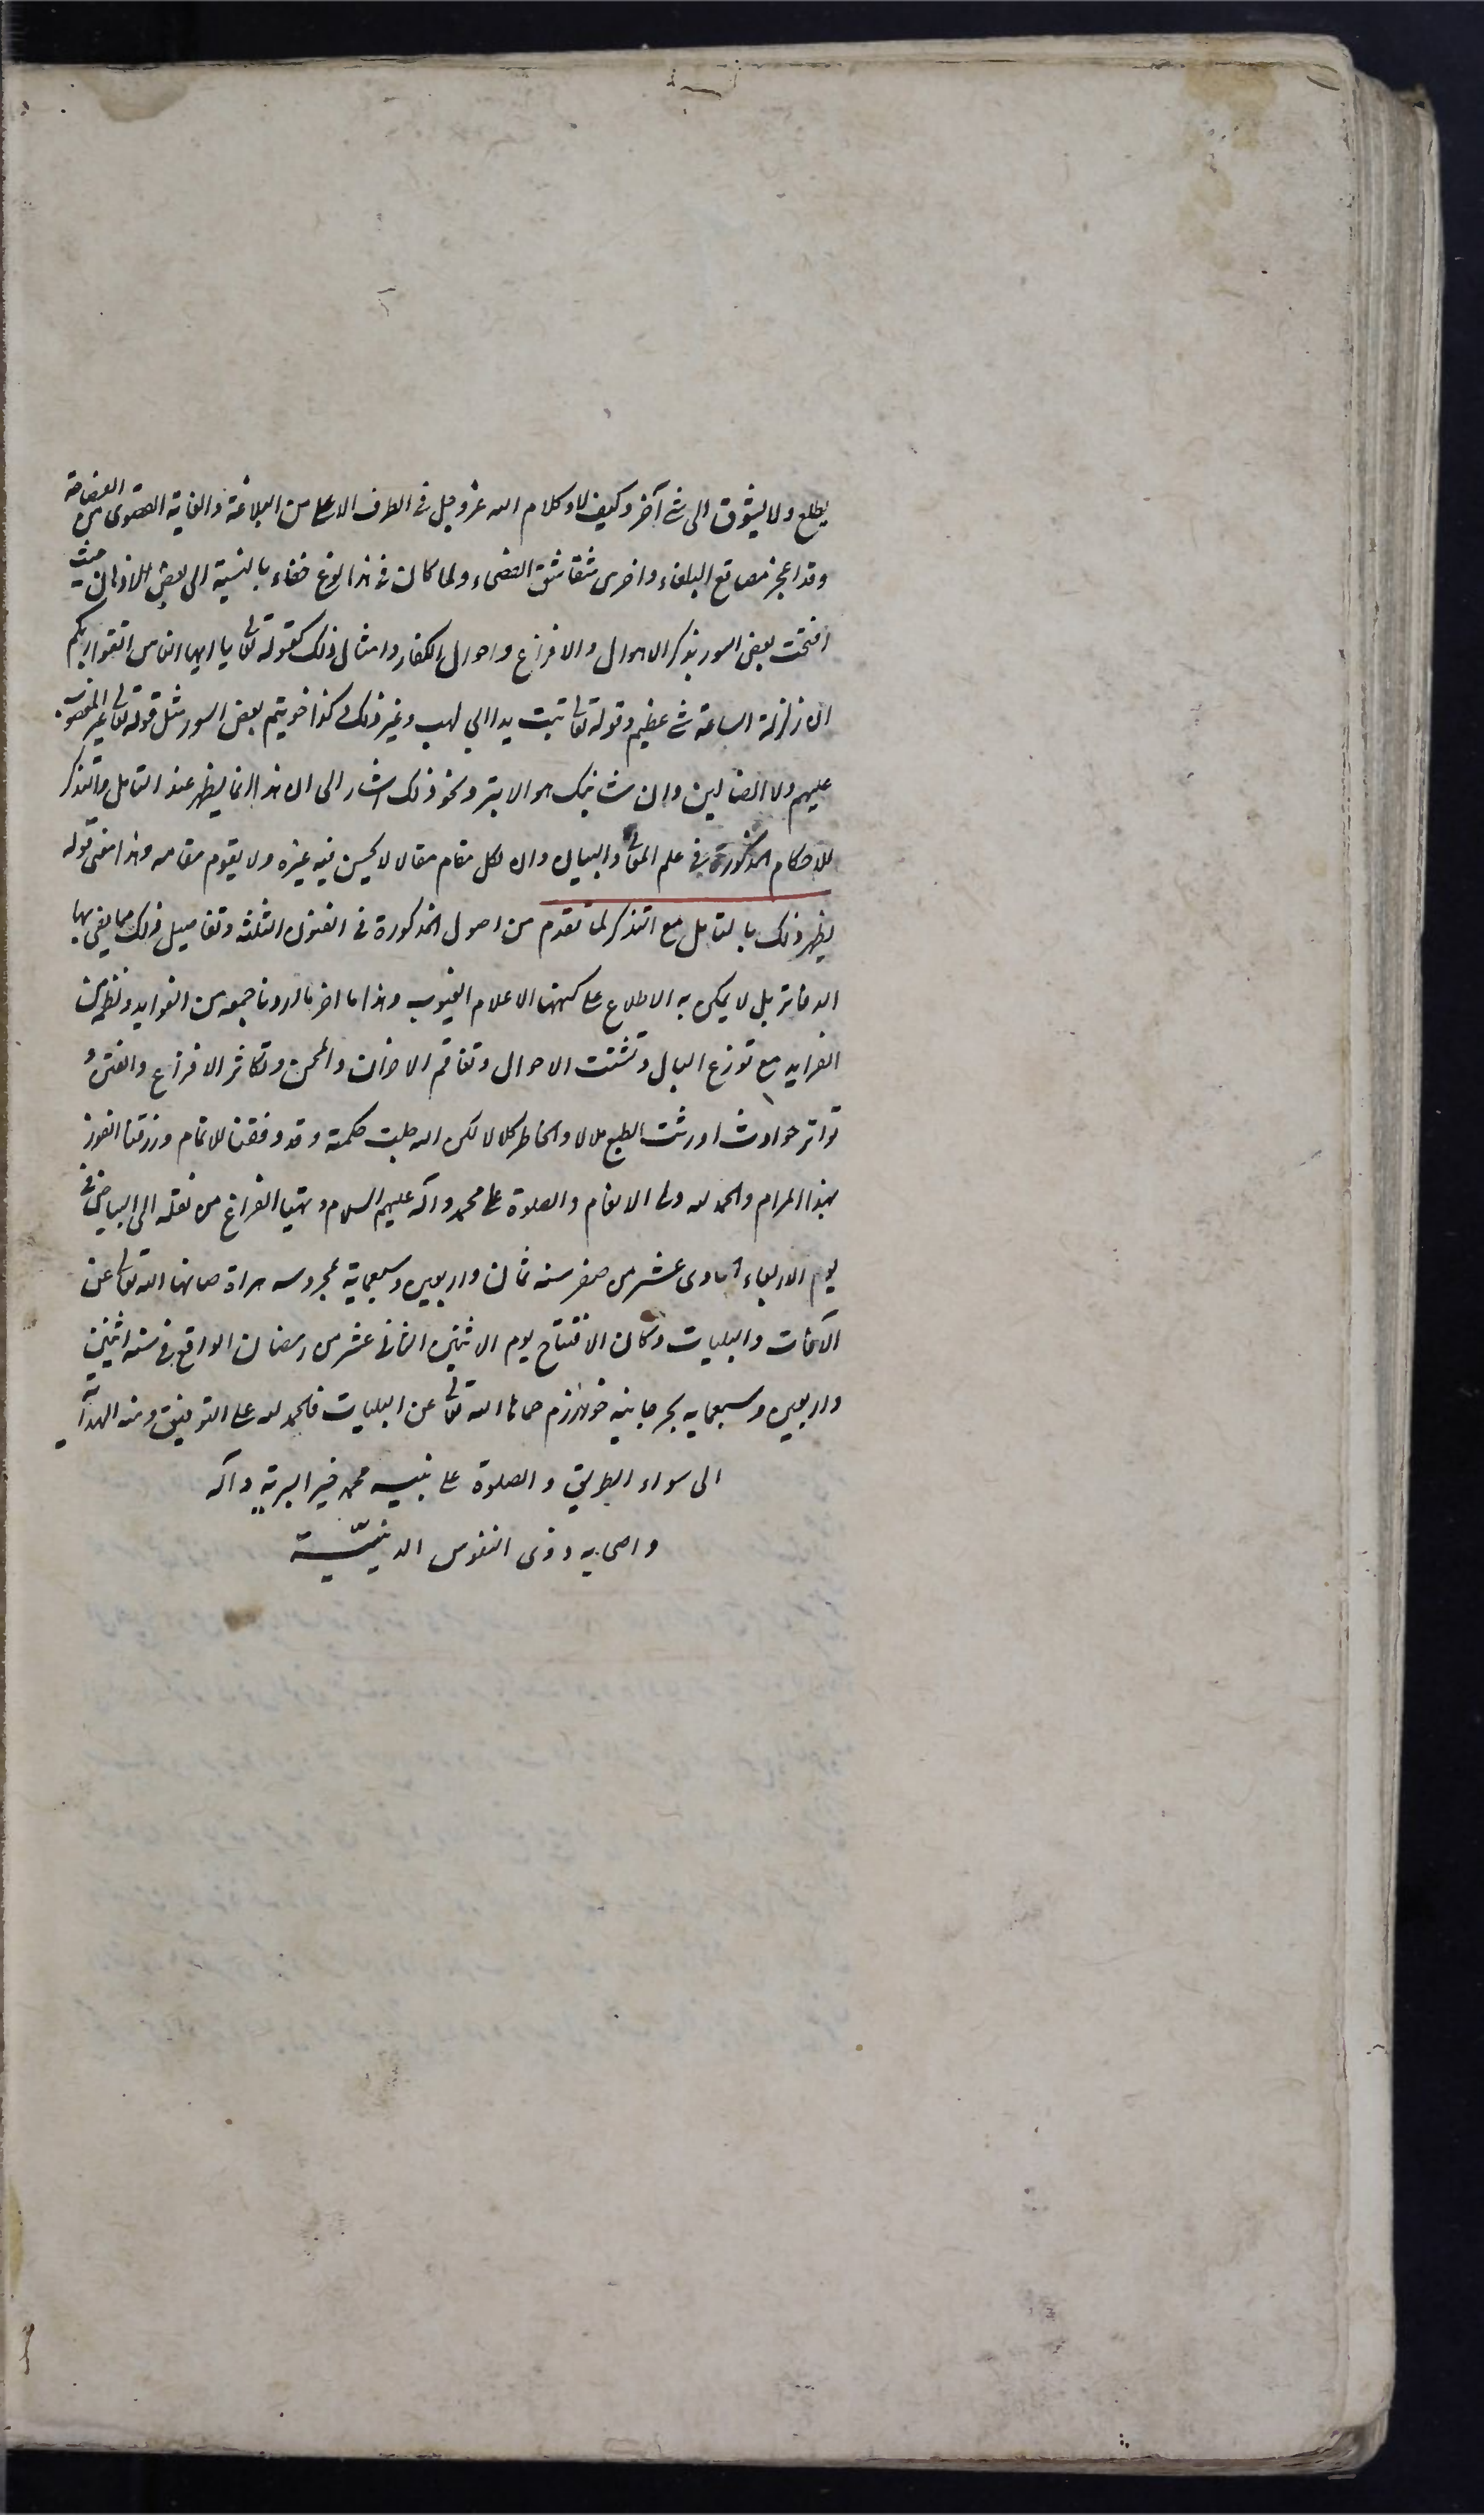 يطلع ولا يشوق الى شئ آخر وكيف لا وكلام الله عز وجل فى الطرف الاعلى من البلاغة والغاية القصوى من الفصاحة
وقد اعجز مصاقع البلغاء واخرس شقاشق الفصحاء ولما كان فى هذا نوع خفاء بالنسبة الى بعض الاذهان حيث
افتتحت بعض السور بذكر الاهوال والافزاع واحوال الكفار وامثال ذلك كقوله تعالى يا ايها الناس اتقوا ربكم
ان زلزلة الساعة شئ عظيم وقوله تعالى تبت يدا ابى لهب وغير ذلك وكذا خواتيم بعض السور مثل قوله تعالى غير المغضوب
عليهم ولا الضالين وان شانئك هو الابتر ونحو ذلك اشار الى ان هذا انما يظهر عند التامل والتذكر
للاحكام المذكورة فى علم المعانى والبيان وان لكل مقام مقالا لا يحسن فيه غيره ولا يقوم مقامه وهذا معنى قوله
يظهر ذلك بالتامل مع التذكر لما تقدم من اصول المذكورة فى الفنون الثلثة وتفاصيل ذلك مما لا يفى بها
الدفاتر بل لا يمكن به الاطلاع على كنهها الا علام الغيوب وهذا ما اخر ما اردنا جمعه من الفوايد ونظمه من
الفرايد مع توزع البال وتشتت الاحوال وتفاقم الاحزان والمحن وتكاثر الافزاع والفتن و
تواتر حوادث اورثت الطبع ملالا والخاطر كلالا لكن الله جلت حكمته وقد وفقنا للاتمام ورزقنا الفوز
بهذا المرام والحمد لله ولى الانعام والصلوة على محمد وآله عليهم السلام وتهيا الفراغ من نقله الى البياض فى
يوم الاربعاء الحادى عشر من صفر سنه ثمان واربعين وسبعماية بمحروسه هراة صانها الله تعالى عن
الآفات والبليات وكان الافتتاح يوم الاثنين الثانى عشر من رمضان الواقع فى سنه اثنين
واربعين وسبعمايه بجرجانيه خوارزم حماها الله تعالى عن البليات فالحمد لله على التوفيق ومنه الهداية
الى سواء الطريق والصلوة على نبيه محمد خير البرية وآله
واصحابه ذوى النفوس الدينيّة